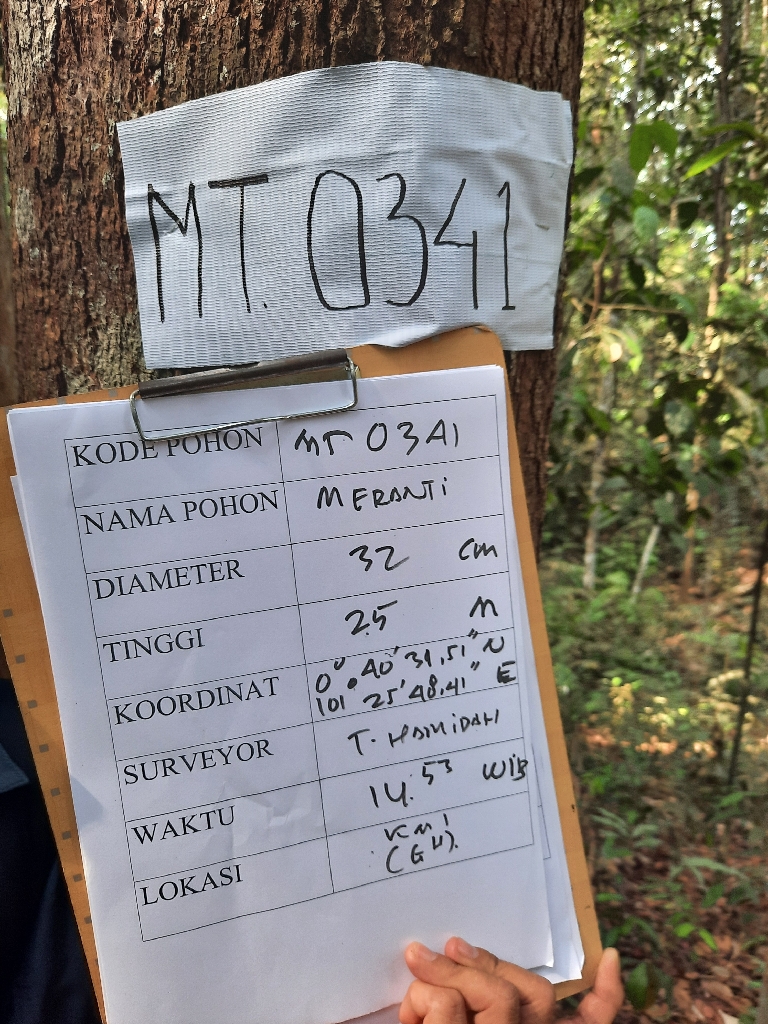 MT. 0341
KODE POHON MT 0341
NAMA POHON MERANTI
DIAMETER 32 cm
TINGGI 25 M
KOORDINAT 0°. 40' 31,51" N
101° 25' 48,41" E
SURVEYOR T. HAMIDAH
WAKTU 14.53 WIB
LOKASI KM 1